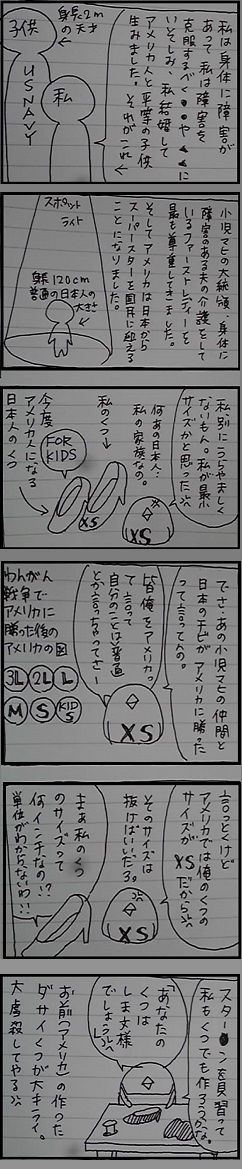 私は身体に障害が
あって、私は障害を
克服するべく●●や▲▲に
いそしみ、私結婚して
アメリカ人と平等の子供
生みました。それがこれ←
身長2mの天才
子供
US NAVY
私
小児マヒの大統領、身体に
障害のある夫の介護をして
いるファーストレディーを
最も尊重してきました。
そしてアメリカは日本から
スーパースターを国民に迎える
ことになりました。
スポット
ライト
身長120cm
普通の日本人の
大きさ
私別にうらやましく
ないもん。私が最小
サイズかと思った
何あの日本人…
私の家族なの。
私のくつ→
XS
XS
FOR
KIDS
今度
アメリカ人になる
日本人のくつ
でさ、あの小児マヒの仲間と
日本のチビがアメリカに勝った
って言ってんの。
皆俺をアメリカっ
て言って
自分のことは普通
とか言っちゃってさー
XS
わんがん
戦争で
アメリカに
勝った後の
アメリカの図
3L 2L L
M S KIDS
言っとくけど
アメリカでは俺のくつの
サイズがXSだから
そのサイズは
抜けばいいだろ。
XS
まぁ私のくつ
のサイズって
何インチなの!?
単位がわからないわ!!
スター●ンを見習って
私もくつでも作ろうかな。
「あなたの
くつは
しま文様
でしょう」
お前(アメリカ)の作った
ダサイくつが大キライ。
大虐殺してやる